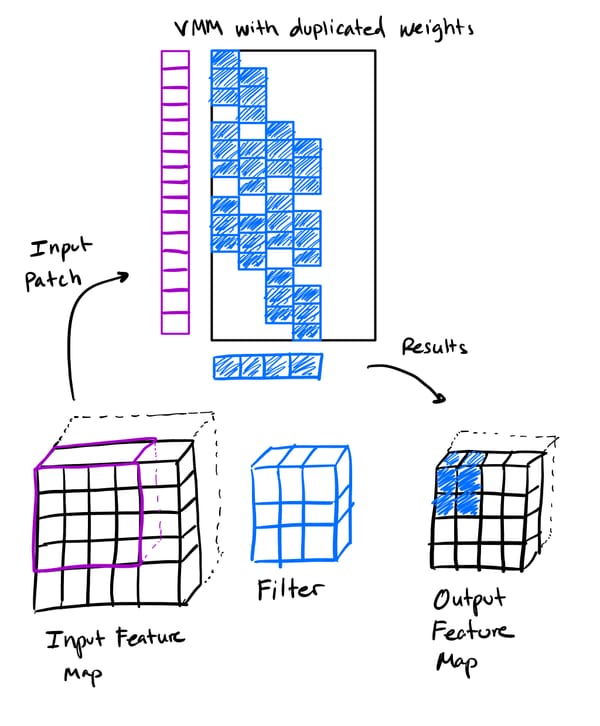 VMM with duplicated weights
Input
Patch
Results
Filter
Input Feature
Map
Output
Feature
Map